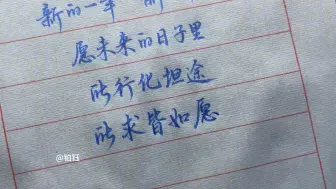 新的一年
愿未来的日子里
所行化坦途
所求皆如愿